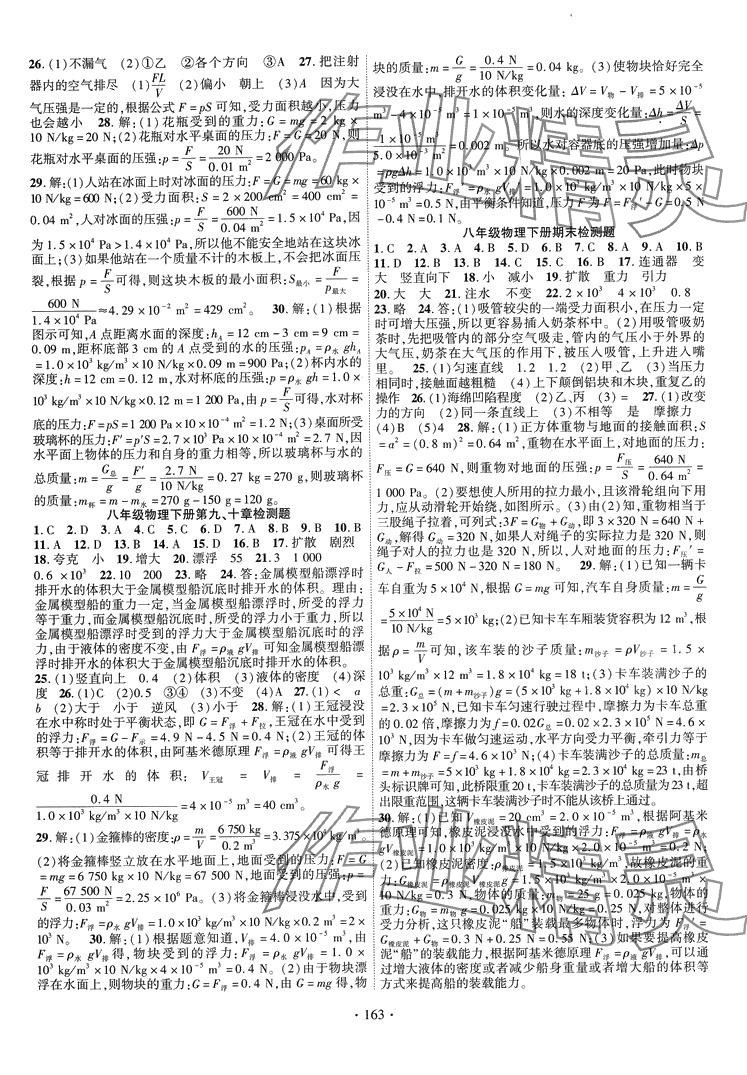 26.(1)不漏气 (2)①乙 ②各个方向 ③A 27.把注射
器内的空气排尽 (1)FL/V (2)偏小 朝上 (3)A 因为大
气压强是一定的,根据公式 F=pS 可知,受力面积越小,压力
也会越小 28.解:(1)花瓶受到的重力:G=mg=2 kg×
10 N/kg=20 N;(2)花瓶对水平桌面的压力:F=G=20 N,则
花瓶对水平桌面的压强:p=F/S=20 N/0.01 m²=2 000 Pa。
29.解:(1)人站在冰面上时对冰面的压力:F=G=mg=60 kg×
10 N/kg=600 N;(2)受力面积:S=2×200 cm²=400 cm²=
0.04 m²,人对冰面的压强:p=F/S=600 N/0.04 m²=1.5×10⁴ Pa,因
为1.5×10⁴ Pa>1.4×10⁴ Pa,所以他不能安全地站在这块冰
面上;(3)如果他站在一个质量不计的木板上,不会把冰面压
裂,根据 p=F/S可得,则这块木板的最小面积:S最小=F/p最大=
600 N/1.4×10⁴ Pa≈4.29×10⁻² m²=429 cm²。 30.解:(1)根据
图示可知,A 点距离水面的深度:hA=12 cm-3 cm=9 cm=
0.09 m,距杯底部 3 cm 的 A 点受到的水的压强:pA=ρ水 ghA
=1.0×10³ kg/m³×10 N/kg×0.09 m=900 Pa;(2)杯内水的
深度:h=12 cm=0.12 m,水对杯底的压强:p=ρ水 gh=1.0×
10³ kg/m³×10 N/kg×0.12 m=1 200 Pa,由 p=F/S可得,水对杯
底的压力:F=pS=1 200 Pa×10×10⁻⁴ m²=1.2 N;(3)桌面所受
玻璃杯的压力:F′=p′S=2.7×10³ Pa×10×10⁻⁴ m²=2.7 N,因
水平面上物体的压力和自身的重力相等,所以玻璃杯与水的
总质量:m=G总/g=F′/g=2.7 N/10 N/kg=0.27 kg=270 g,则玻璃杯
的质量:m杯=m-m水=270 g-150 g=120 g。
八年级物理下册第九、十章检测题
1.C 2.D 3.A 4.C 5.C 6.D 7.A 8.B 9.B 10.B
11.A 12.D 13.B 14.D 15.B 16.B 17.扩散 剧烈
18.夸克 小 19.增大 20.漂浮 55 21.3 1 000
0.6×10³ 22.10 200 23.略 24.答:金属模型船漂浮时
排开水的体积大于金属模型船沉底时排开水的体积。理由:
金属模型船的重力一定,当金属模型船漂浮时,所受的浮力
等于重力,而金属模型船沉底时,所受的浮力小于重力,所以
金属模型船漂浮时受到的浮力大于金属模型船沉底时的浮
力,由于液体的密度不变,由 F浮=ρ液 gV排可知,金属模型船漂
浮时排开水的体积大于金属模型船沉底时排开水的体积。
25.(1)竖直向上 0.4 (2)体积 (3)液体的密度 (4)深
度 26.(1)C (2)0.5 ③④ (3)不变 (4)A 27.(1)< a
b (2)大于 小于 逆风 (3)小于 28.解:(1)王冠浸没
在水中称时处于平衡状态,即 G=F浮+F拉,王冠在水中受到
的浮力:F浮=G-F示=4.9 N-4.5 N=0.4 N;(2)王冠的体
积等于排开水的体积,由阿基米德原理 F浮=ρ液 gV排可得王
冠排开水的体积:V王冠=V排=F浮/ρ水 g=
0.4 N/1.0×10³ kg/m³×10 N/kg=4×10⁻⁵ m³=40 cm³。
29.解:(1)金箍棒的密度:ρ=m/V=6 750 kg/0.2 m³=3.375×10⁴ kg/m³;
(2)将金箍棒竖立放在水平地面上,地面受到的压力:F=G
=mg=6 750 kg×10 N/kg=67 500 N,地面受到的压强:p=
F/S=67 500 N/0.03 m²=2.25×10⁶ Pa;(3)将金箍棒浸没水中,受到
的浮力:F浮=ρ水gV排=1.0×10³ kg/m³×10 N/kg×0.2 m³=2
×10³ N。 30.解:(1)根据题意可知,V排=4.0×10⁻⁵ m³,由
F浮=ρ水 gV排得,物块受到的浮力:F浮=ρ水 gV排=1.0×
10³ kg/m³×10 N/kg×4×10⁻⁵ m³=0.4 N;(2)由于物块漂
浮在水面上,则物块的重力:G=F浮=0.4 N,由 G=mg 可得,物
块的质量:m=G/g=0.4 N/10 N/kg=0.04 kg。(3)使物块恰好完全
浸没在水中,排开水的体积变化量:ΔV=V物-V排=5×10⁻⁵
m³-4×10⁻⁵ m³=1×10⁻⁵ m³,则水的深度变化量:Δh=ΔV/S=
1×10⁻⁵ m³/5.0×10⁻³ m²=0.002 m。所以水对容器底的压强增加量:Δp
=ρgΔh=1.0×10³ kg/m³×10 N/kg×0.002 m=20 Pa,此时物块
受到的浮力:F浮′=ρ水 gV物=1.0×10³ kg/m³×10 N/kg×5×
10⁻⁵ m³=0.5 N,由平衡条件知道,压力 F压=F浮′-G=0.5 N
-0.4 N=0.1 N。
八年级物理下册期末检测题
1.C 2.A 3.B 4.D 5.B 6.D 7.C 8.A 9.A 10.B
11.D 12.D 13.C 14.A 15.C 16.B 17.连通器 变
大 竖直向下 18.小 减小 19.扩散 重力 引力
20.大 大 21.注水 不变 22.2×10³ 4×10³ 0.8
23.略 24.答:(1)吸管较尖的一端受力面积小,在压力一定
时可增大压强,所以更容易插入奶茶杯中。(2)用吸管吸奶
茶时,先把吸管内的部分空气吸走,管内的气压小于外界的
大气压,奶茶在大气压的作用下,被压入吸管,上升进入嘴
里。 25.(1)匀速直线 1.2 (2)甲、乙 (3)当压力
相同时,接触面越粗糙 (4)上下颠倒铝块和木块,重复乙的
操作 26.(1)海绵凹陷程度 (2)乙、丙 (3)= 27.(1)改变
力的方向 (2)同一条直线上 (3)不相等 是 摩擦力
(4)B (5)4 28.解:(1)正方体重物与地面的接触面积:S
=a²=(0.8 m)²=0.64 m²,重物在水平面上,对地面的压力:
F压=G=640 N,则重物对地面的压强:p=F压/S=640 N/0.64 m²=
1 000 Pa。(2)要想使人所用的拉力最小,且该滑轮组用两段
力,应从动滑轮开始绕,如图所示。(3)由(2)知,重物相当于
三股绳子拉着,可列式:3F=G物+G动,即 3×320 N=640 N+
G动,解得 G动=320 N,如果人对绳子的实际拉力是 320 N,则
绳子对人的拉力也是 320 N,所以人对地面的压力:F压′=
G人-F拉=500 N-320 N=180 N。 29.解:(1)已知一辆卡
车自重为 5×10⁴ N,根据 G=mg 可知,汽车自身质量:m=G/g
=5×10⁴ N/10 N/kg=5×10³ kg;(2)已知卡车车厢装货容积为12 m³,根
据ρ=m/V可知,该车装的沙子质量:m沙子=ρV沙子=1.5×
10³ kg/m³×12 m³=1.8×10⁴ kg=18 t;(3)卡车装满沙子的
总重:G总=(m+m沙子)g=(5×10³ kg+1.8×10⁴ kg)×10 N/kg
=2.3×10⁵ N,已知卡车匀速行驶过程中,摩擦力为卡车总重
的 0.02 倍,摩擦力为 f=0.02G总=0.02×2.3×10⁵ N=4.6×
10³ N,卡车做匀速运动,水平方向受力平衡,牵引力等于
摩擦力 F=f=4.6×10³ N;(4)卡车装满沙子的总质量:m总
=m+m沙子=5×10³ kg+1.8×10⁴ kg=2.3×10⁴ kg=23 t,由桥
头标识牌可知,卡车装满沙子的总质量为 23 t,大于 20 t,超
出限重范围,这辆卡车装满沙子时不能从该桥上通过。
30.解:(1)已知V排=V橡皮泥=20 cm³=2.0×10⁻⁵ m³,根据阿基米
德原理可知,橡皮泥浸没水中受到的浮力:F浮=ρ水
gV排=1.0×10³ kg/m³×10 N/kg×2.0×10⁻⁵ m³=0.2 N;
(2)已知橡皮泥密度:ρ橡皮泥=1.5×10³ kg/m³,故橡皮泥的重
力:G橡皮泥=ρ橡皮泥gV橡皮泥=1.5×10³ kg/m³×2.0×10⁻⁵
m³×10 N/kg=0.3 N,物体的质量:m物=25 g=0.025 kg,物体的
重力:G物=m物 g=0.025 kg×10 N/kg=0.25 N,对物体的整体进行
受力分析,这只橡皮泥“船”装载最多物体时,浮力为:F浮=
G橡皮泥+G物=0.3 N+0.25 N=0.55 N;(3)如果要提高橡皮
泥“船”的装载能力,根据阿基米德原理F浮=ρ液 gV排可知,可以
通过增大液体的密度或者减少船身重量或者增大船的体积等
方式来提高船的装载能力。
·163·
作业精灵
作业精灵